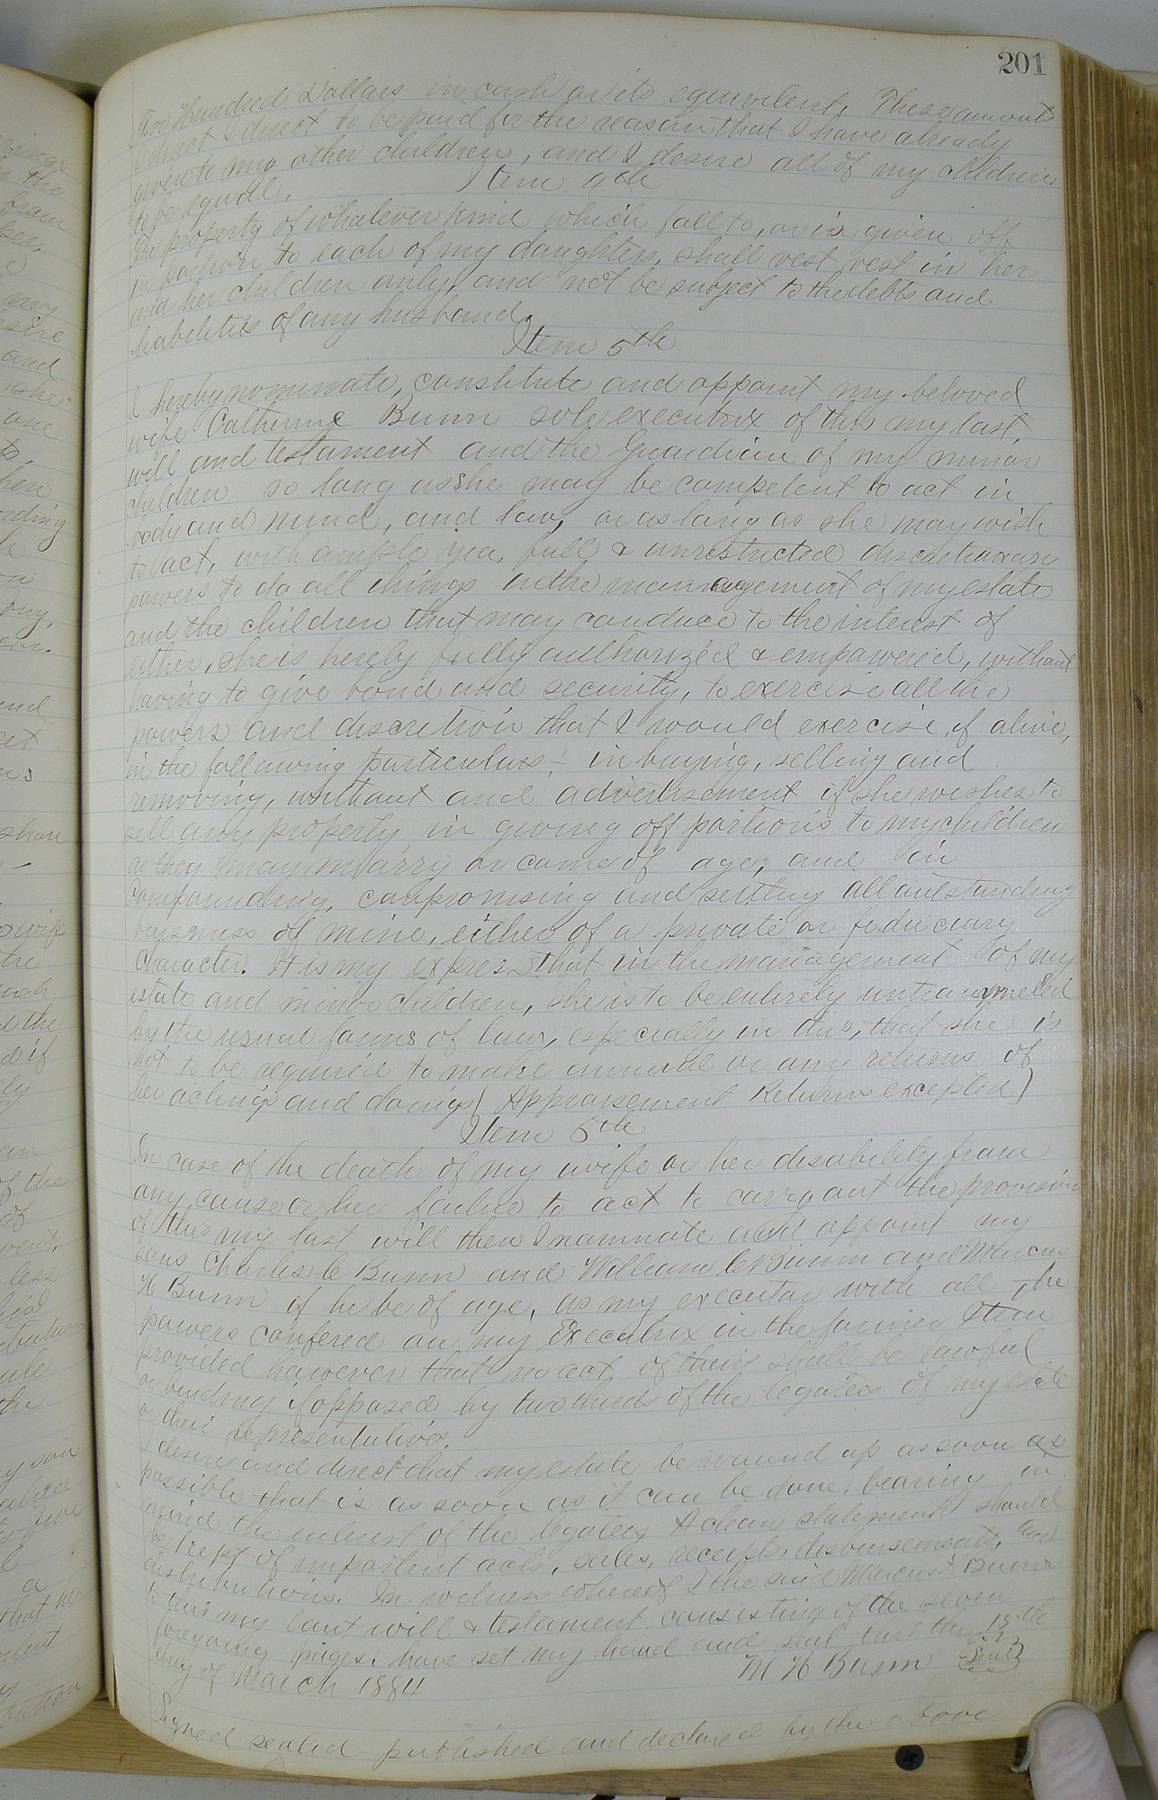 201
Two Hundred Dollars in cash or its equivilent, These amount
I direct to be paid for the reason that I have already
given to my other children, and I desire all of my children
to be equall.
Item 4th
The property of whatever kind which fall to, or is given off
in portion to each of my daughters, shall vest vest in her
and her children only, and not be subject to the debts and
liabilities of any husband.
Item 5th
I hereby nominate, constitute and appoint my beloved
wife Catherine Bunn sole executrix of this my last,
will and testament and the Guardian of my minor
children so long as she may be competent to act in
body and mind, and law, or as long as she may wish
to act, with ample yea, full & unrestricted discretionary
powers to do all things in the management of my estate
and the children that may conduce to the interest of
either, she is hereby fully authorized & empowered, without
having to give bond and security, to exercise all the
powers and discretion that I would exercise, if alive,
in the following particulars: in buying, selling and
removing, without and advertisement if she wishes to
sell any property in giving off portions to my children
as they may marry or come of age, and in
compounding, compromising and settling all outstanding
business of mine, either of a private or fiduciary
Character. It is my express that in the management of my
estate and minor children, she is to be entirely untrammeled
by the usual forms of law, especially in this, that she is
not to be required to make annual or any returns of
her actings and doings (Appraisement Return excepted)
Item 6th
In case of the death of my wife or her disability from
any cause or her failure to act to carry out the provision
of this my last will then I nominate and appoint my
sons Charles C Bunn and William C Bunn and Marcus
H Bunn if he be of age, as my executor with all the
powers confered on my Executrix in the former Item
provided however that no act of theirs shall be lawful
or binding if opposed by two thirds of the legatees of my estate
or their representative.
I desire and direct that my estate be wound up as soon as
possible that is as soon as it can be done, bearing in
mind the interest of the legatees A clean statement should
be kept of important acts, sales, receipts, disbursements, and
distributions. In witness whereof I the said Marcus H Bunn
to this my last will & testament consisting of the seven
foregoing pages have set my hand and seal this the 18th
day of March 1884
M H Bunn Seal
Signed sealed published and declared by the above